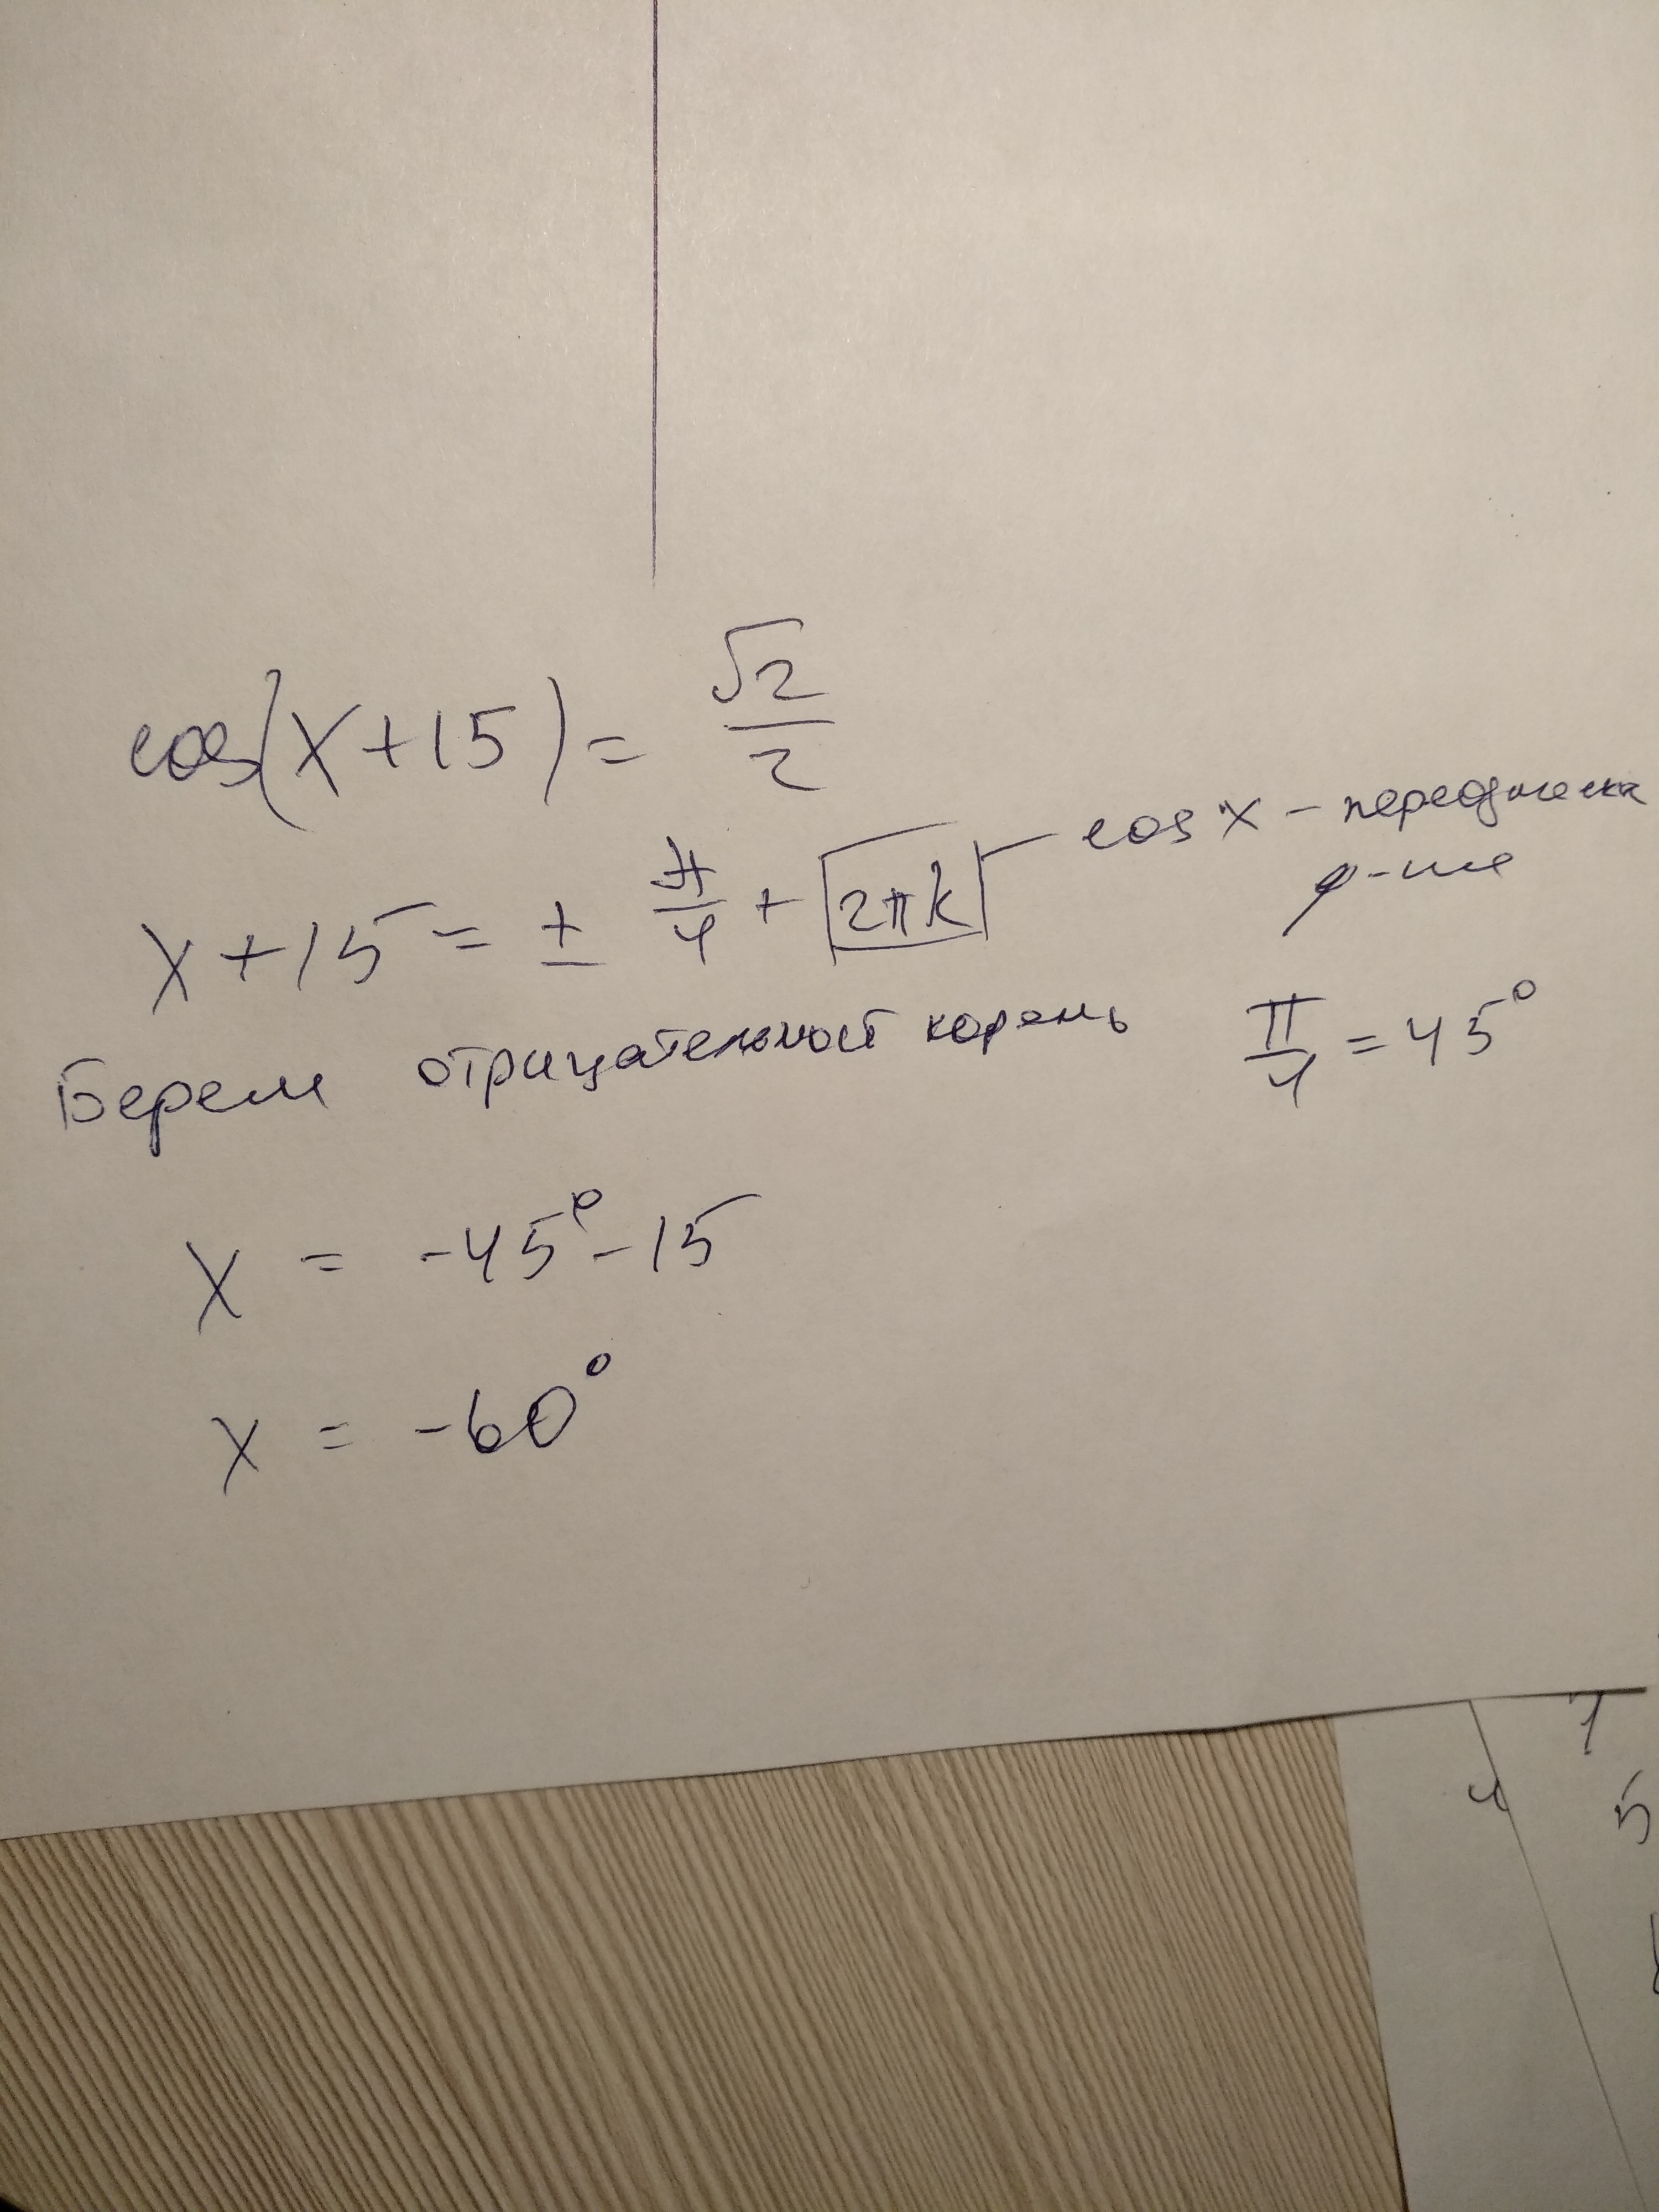 cos(x+15) = √2/2
x+15 = ± π/4 + 2πk - cos x - периодическая
ф-ия
Берем отрицательный корень π/4 = 45°
x = -45° - 15
x = -60°
7
4 5